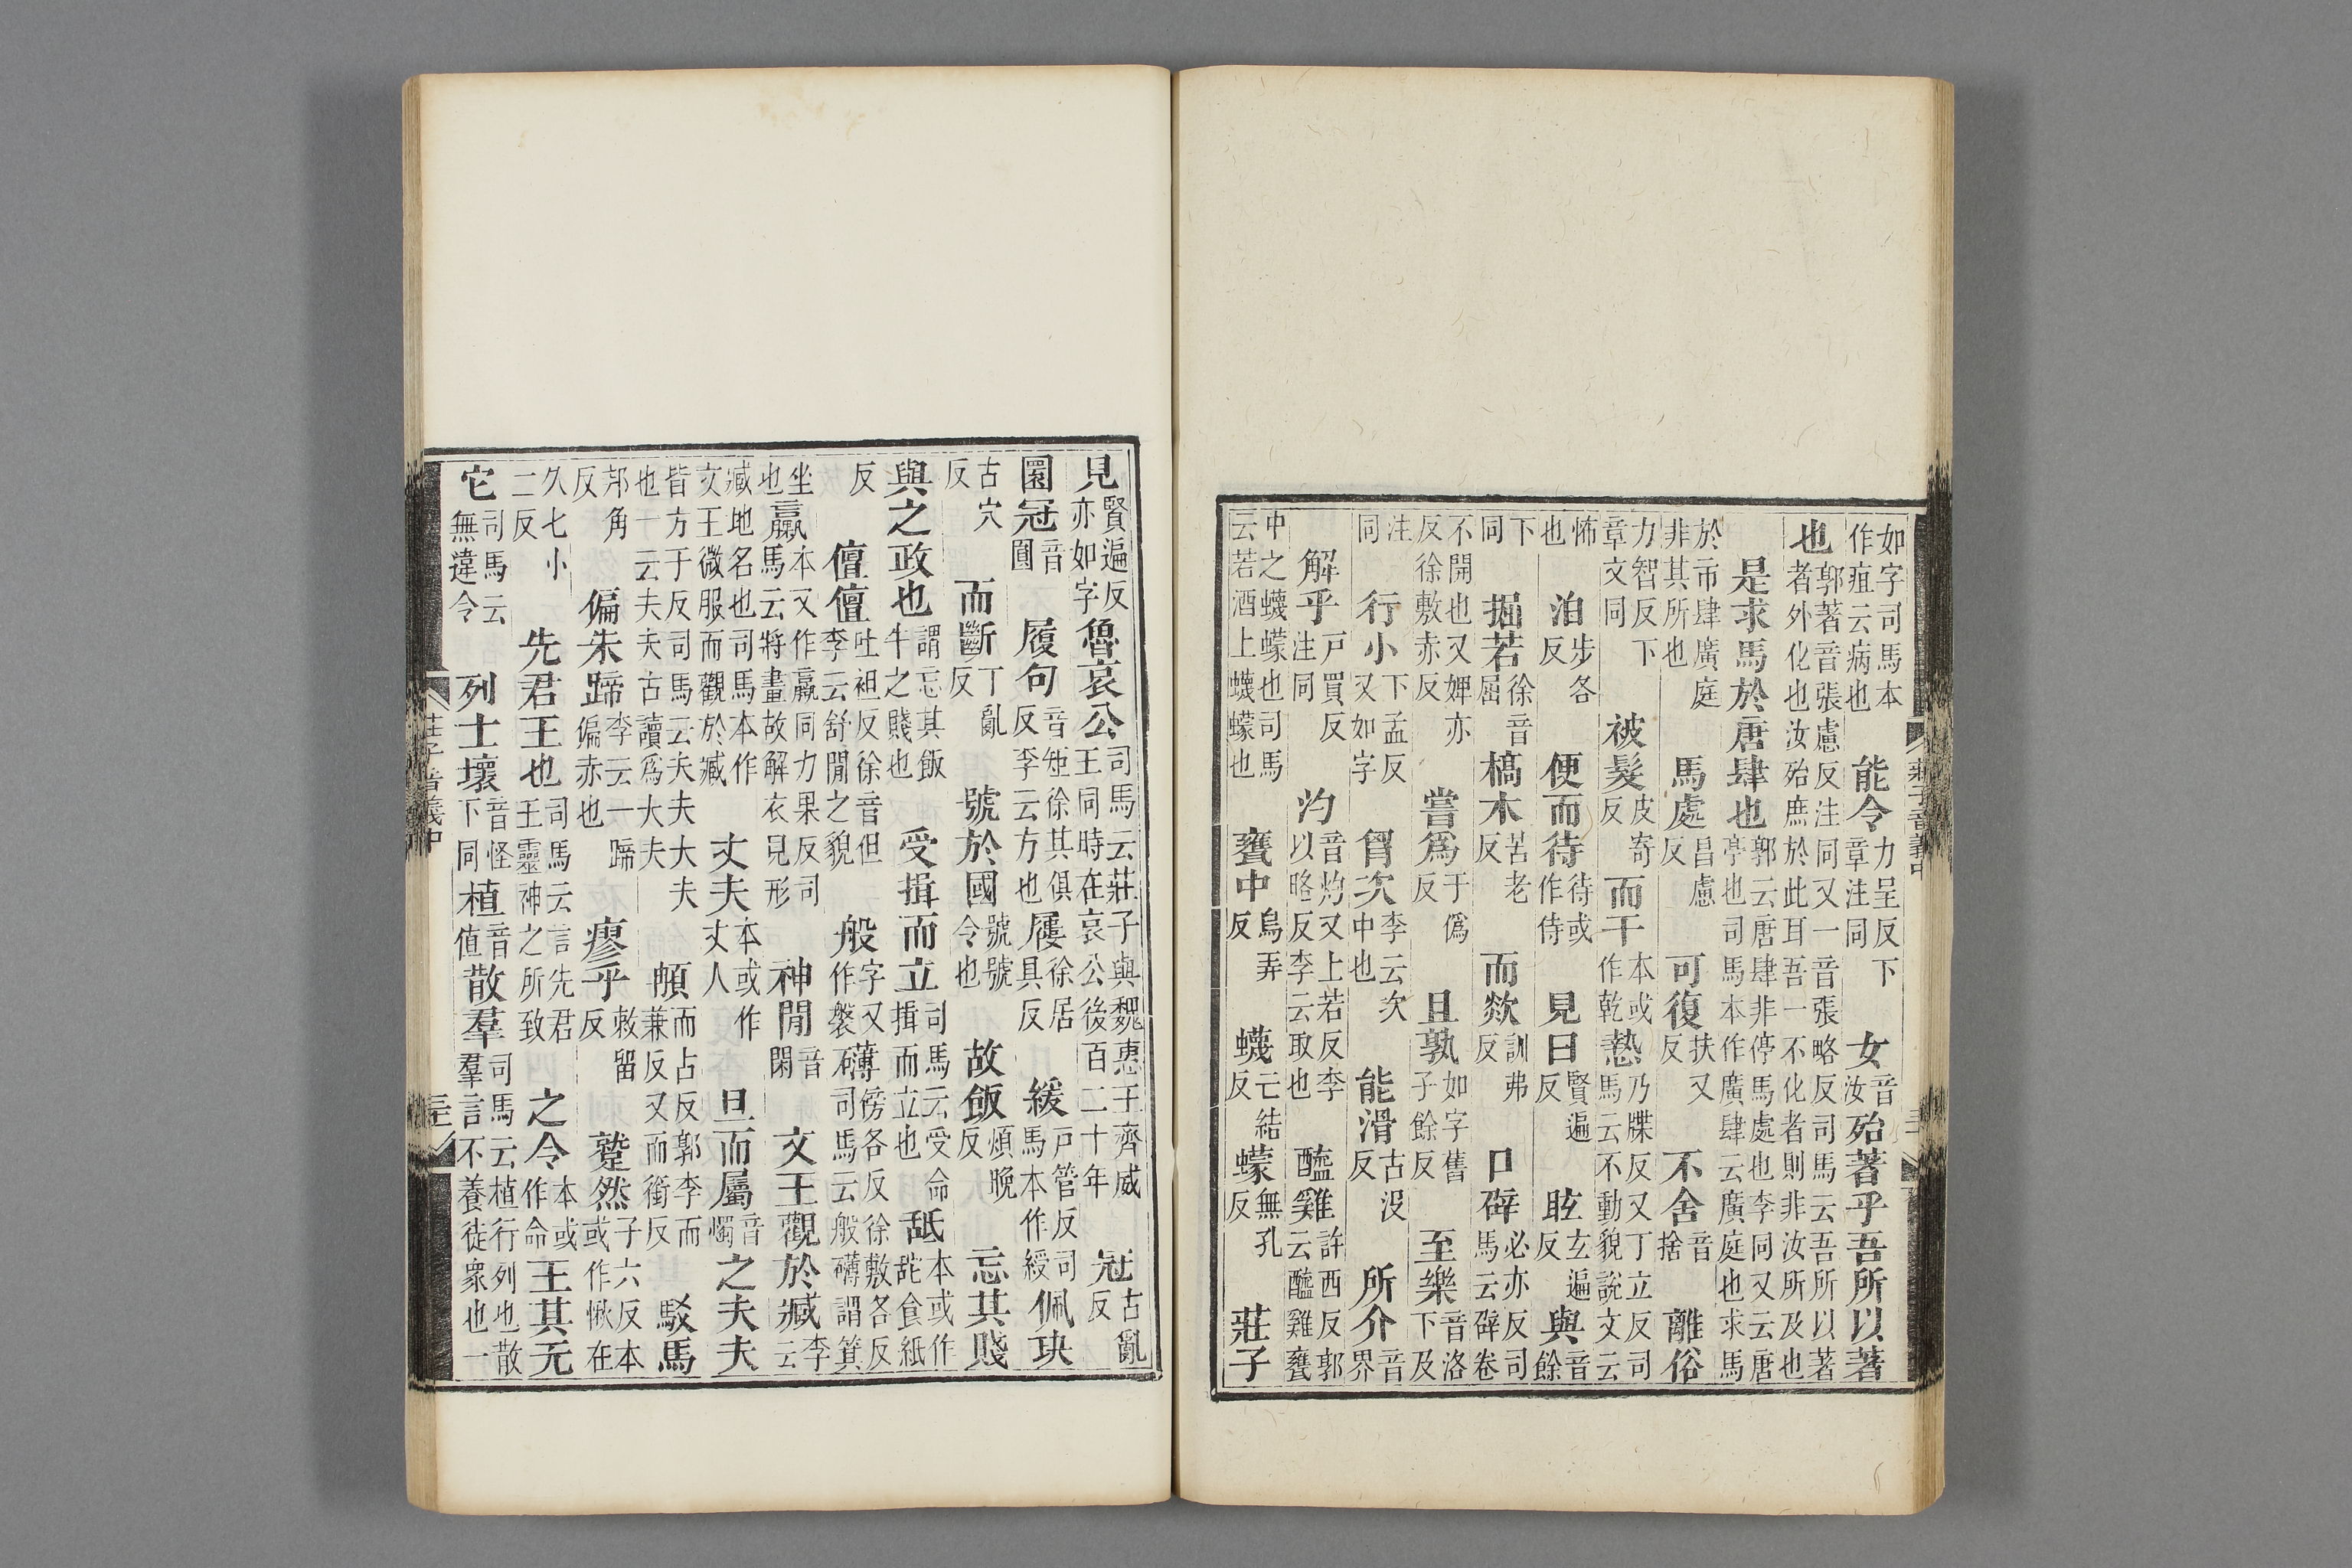 如字司馬本作疽云病也 能令力呈反下章注同 女音汝 殆著乎吾所以著
也郭著音張慮反注同又一音張略反司馬云吾所以著者外化也汝殆庶於此耳吾一不化者則非汝所及也
是求馬於唐肆也郭云唐肆非停馬處也李同又云唐亭也司馬本作廣肆云廣庭也求馬
於市肆廣庭非其所也 馬處昌慮反 可復扶又反 不舍音捨 離俗
力智反下章文同 被髮皮寄反 而干本或作乾 慹乃牒反又丁立反司馬云不動貌說文云
怖也 泊步各反 便而待待或作侍 見曰賢遍反 眩玄遍反 與音餘
下同 掘若徐音屈 槁木苦老反 而欻訓弗反 口辟必亦反司馬云辟卷
不開也又婢亦反徐敷赤反 嘗爲于僞反 且孰如字舊子餘反 至樂音洛下及
注同 行小下孟反又如字 胷次李云次中也 能滑古沒反 所介音界
解乎戶買反注同 汋音灼又上若反李以略反李云取也 醯雞許西反郭云醯雞甕
中之蠛蠓也司馬云若酒上蠛蠓也 甕中烏弄反 蠛亡結反 蠓無孔反 莊子
莊子音義中
見賢遍反亦如字 魯哀公司馬云莊子與魏惠王齊威王同時在哀公後百二十年 冠古亂反
圜冠音圓 履句音矩徐其俱反李云方也 屨徐居具反 緩戶管反司馬本作綬 佩玦
古穴反 而斷丁亂反 號於國號號令也 故飯煩晚反 忘其賤
與之政也謂忘其飯牛之賤也 受揖而立司馬云受命揖而立也 舐本或作食紙
反 儃儃吐袒反徐音但李云舒閒之貌 般字又作槃 礴傍各反徐敷各反司馬云般礴謂箕
坐也 臝本又作羸同力果反司馬云將畫故解衣見形 神閒音閑 文王觀於臧李云
臧地名也司馬本作文王微服而觀於臧 丈夫本或作丈人 旦而屬音燭 之夫夫
皆方于反司馬云夫夫大夫也一云夫夫古讀爲大夫 䫇而占反郭李而兼反又而銜反 駁馬
邦角反 偏朱蹄李云一蹄偏赤也 瘳乎敕留反 蹵然子六反本或作愀在
久七小二反 先君王也司馬云言先君王靈神之所致 之令本或作命 王其无
它司馬云無違令 列士壞音怪下同 植音值 散羣司馬云植行列也散羣言不養徒衆也一
莊子音義中